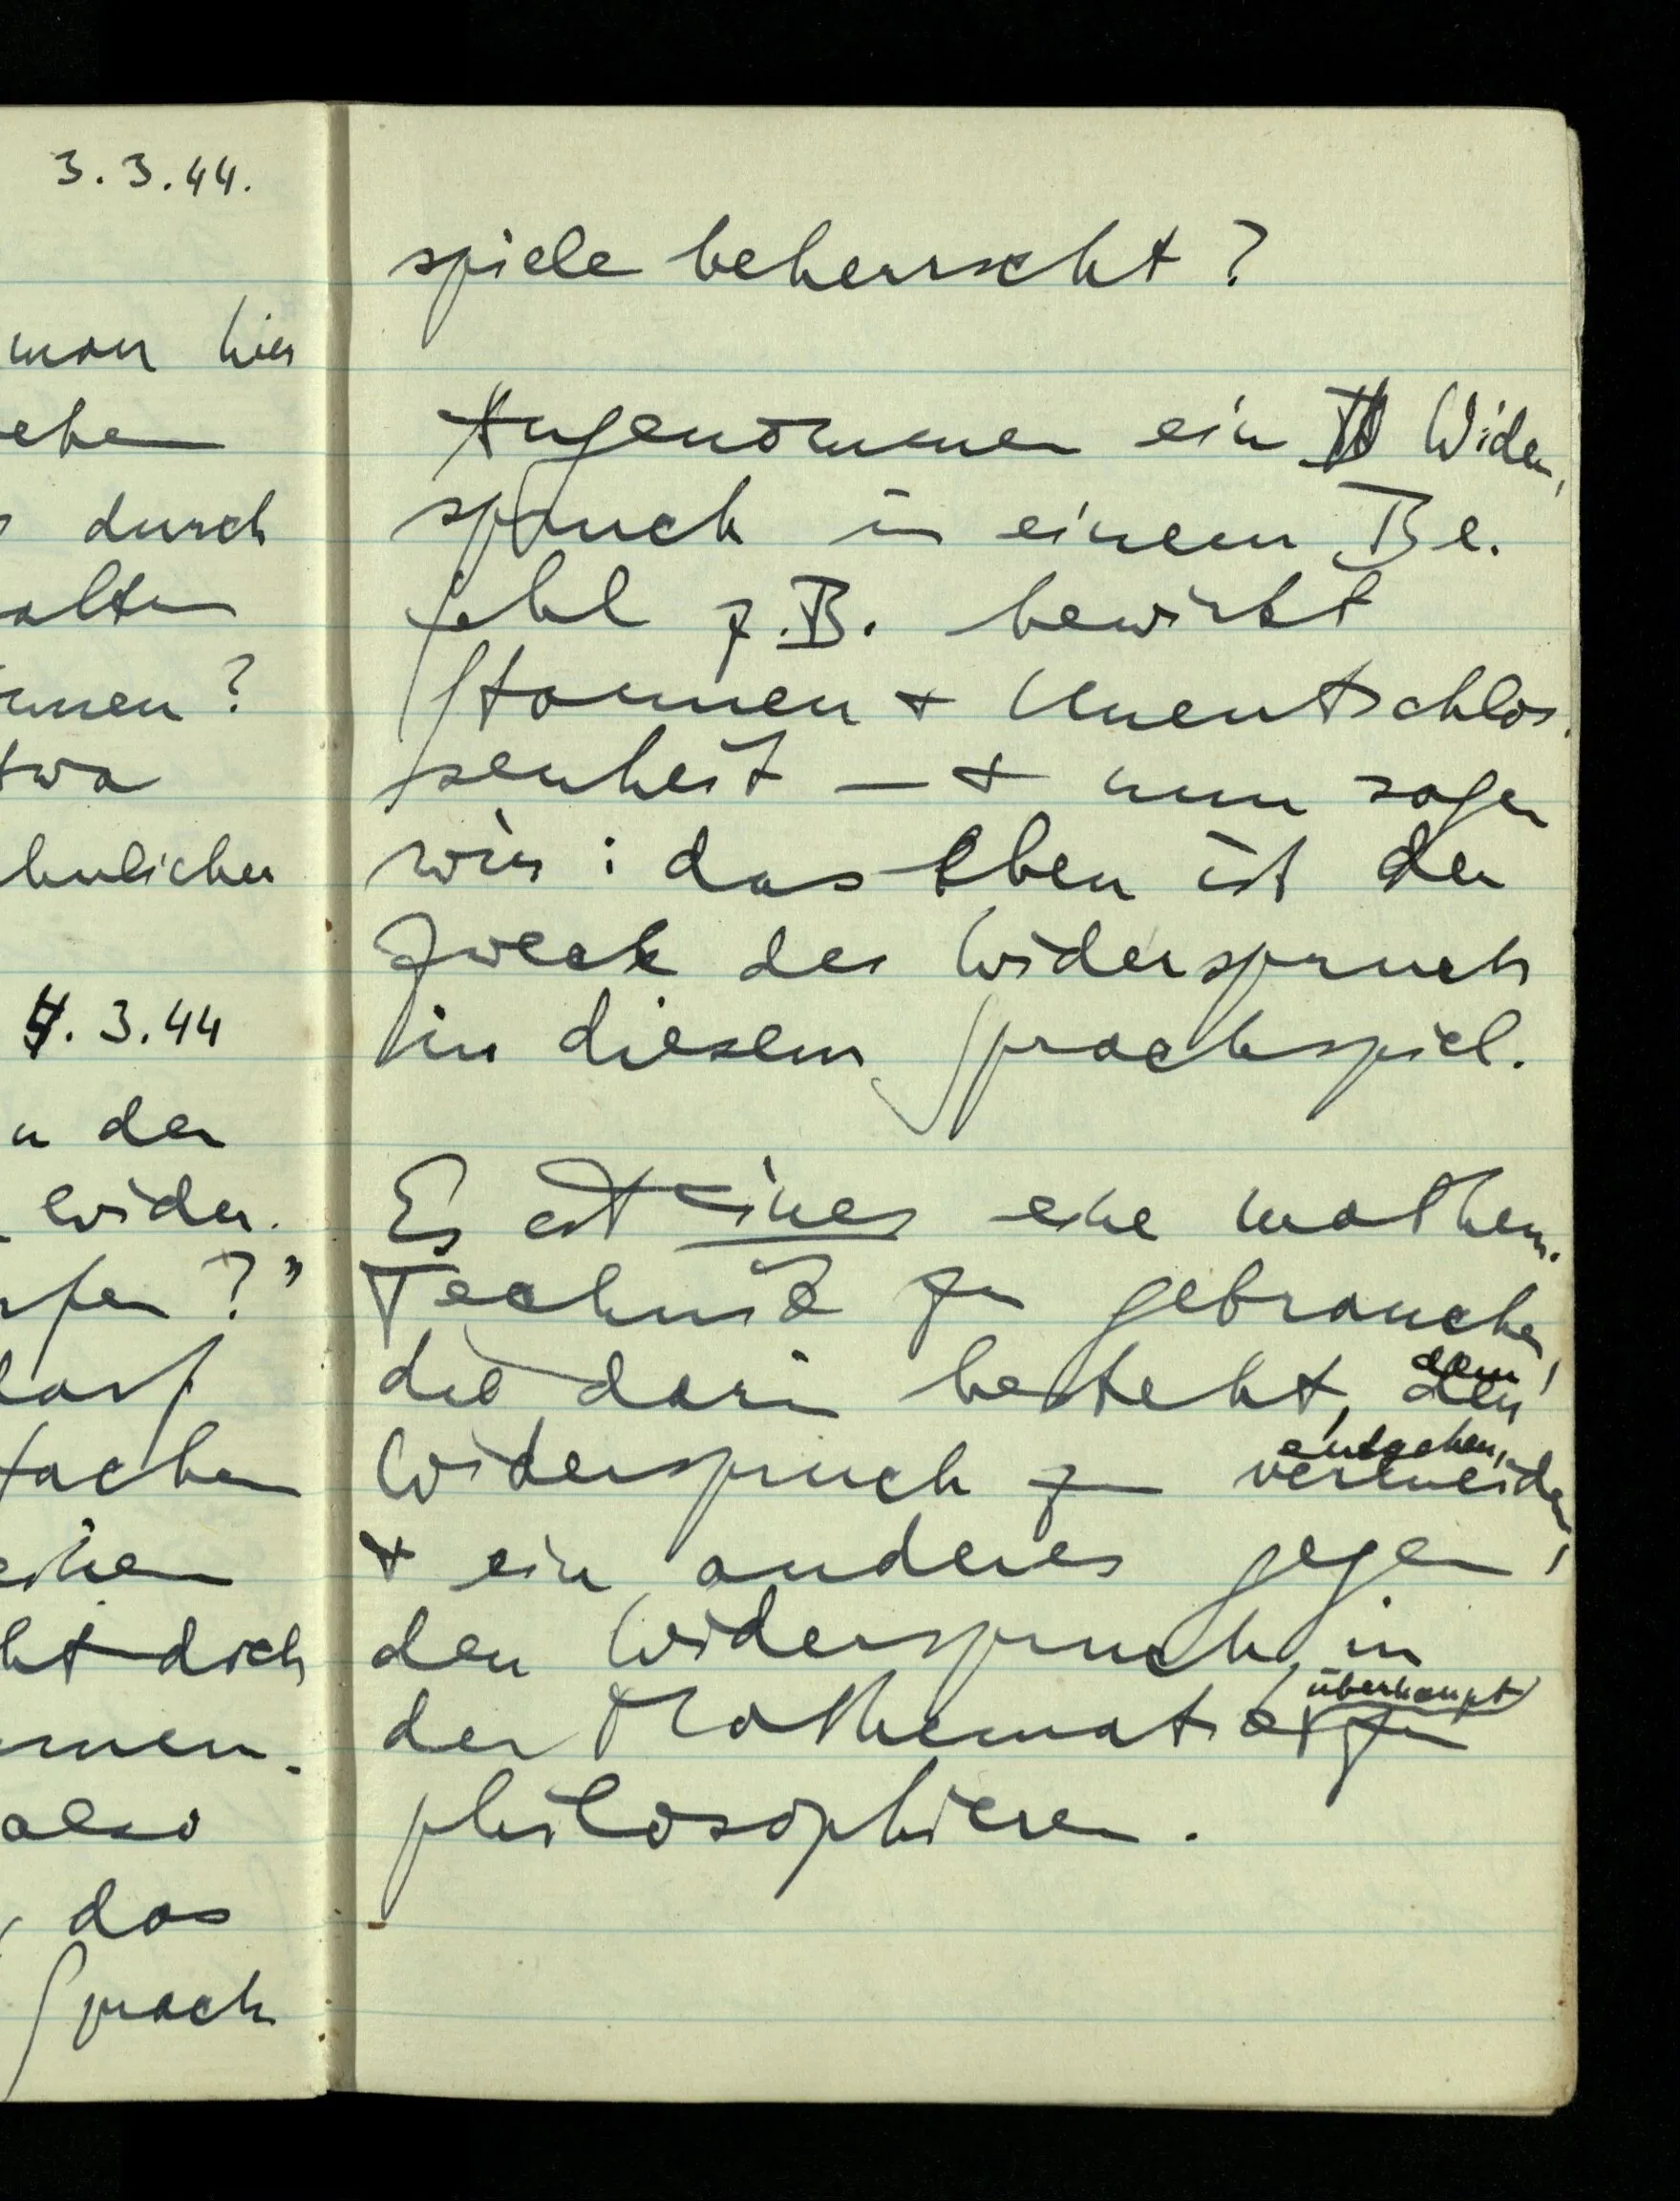 3.3.44.
man hier
ehen
durch
alten
?
twa
hnlicher
4.3.44
u der
wider.
rfen?"
darf
fachen
eihen
ht dich
men.
also
, das
Sprach
spiele beherrscht?
Angenommen ein Wider,
spruch in einem Be.
fehl z.B. bewirkt
Staunen + Unentschlos.
senheit – + nun sagen
wir: das eben ist der
Zweck des Widerspruch
in diesem Sprachspiel.
Es ist eines eine mathem.
Technik zu gebrauchen,
die darin besteht, den dem
Widerspruch zu vermeiden, entgehen,
+ ein anderes gegen
den Widerspruch in
der Mathematik zu überhaupt
philosophieren.